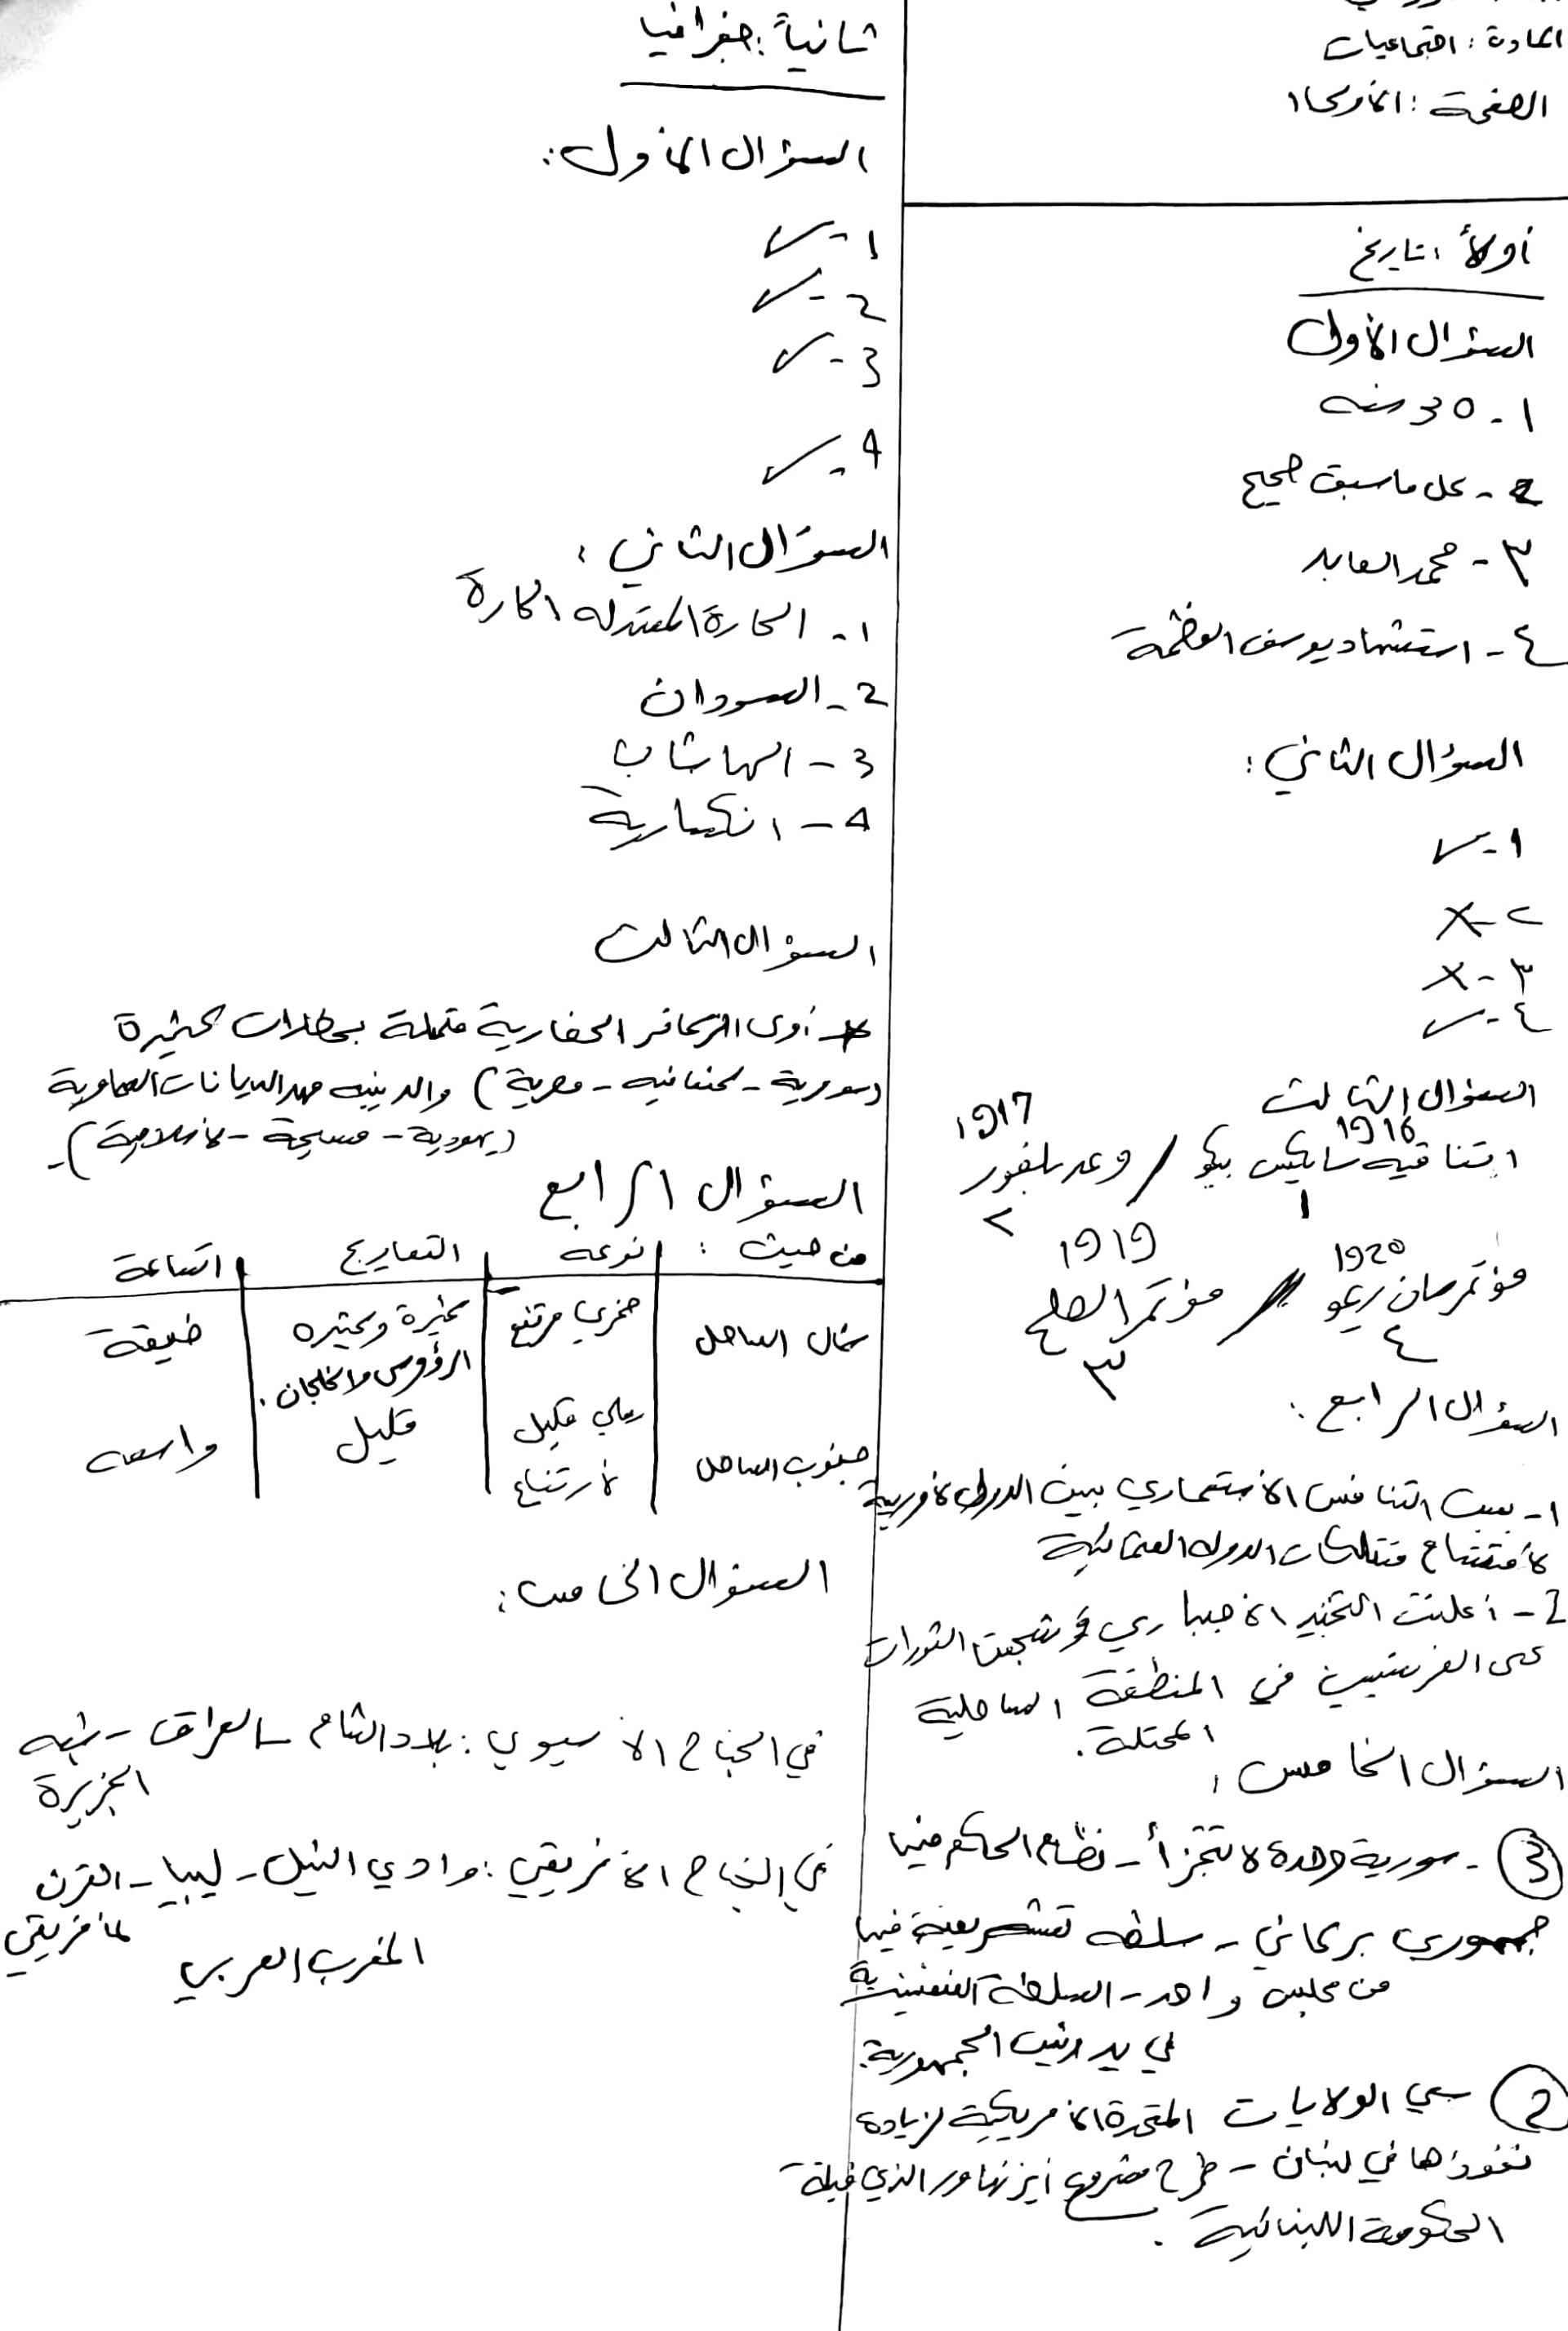 المادة : اجتماعيات
الصفحة : الأولى ١
أولاً : تاريخ
السؤال الأول
١ - 30 سنه
2 - كل ما سبق صحيح
٣ - محمد العابد
٤ - استشهاد يوسف العظمة
السؤال الثاني :
١ - ✓
٢ - X
٣ - X
٤ - ✓
السؤال الثالث
1916 1917
اتفاقيه سايكس بيكو / وعد بلفور
١ ٢
1920 1919
مؤتمر سان ريمو / مؤتمر الصلح
٤ ٣
السؤال الرابع :
١ - بسبب التنافس الاستعماري بين الدول الأوربية
لأقتسام ممتلكات الدوله العثمانية
2 - أعلنت التجنيد الأجباري و شجعت الثورات
على الفرنسيين في المنطقة الساحلية
المحتلة .
السؤال الخامس :
3 - سورية وحدة لا تتجزأ - نظام الحكم فيها
جمهوري برلماني - سلطه تشريعية فيها
من مجلس واحد - السلطة التنفيذية
في يد رئيس الجمهورية .
2 سعي الولايات المتحدة الأمريكية لزيادة
نفوذها في لبنان - طرح مشروع أيزنهاور الذي قبلة
الحكومة اللبنانية .
ثانياً : جغرافيا
السؤال الأول :
1 - ✓
2 - ✓
3 - ✓
4 - ✓
السؤال الثاني :
١ - الحارة المعتدله الحارة
2 - السودان
3 - الهاشاب
4 - انكسارية
السؤال الثالث
أدى الحضارية متمثلة بحضارات كثيرة
(سورية - كنعانيه - مصرية) والدينيه مهد الديانات السماوية
(يهودية - مسيحية - لأسلامية) .
السؤال الرابع
من حيث : نوعه التعاريج اتساعة
شمال الساحل صخري مرتفع كثيرة وكثيره الرؤوس والخلجان . ضيقة
جنوب الساحل رملي قليل لأرتفاع قليل واسعه
السؤال الخامس :
في الجناح الأسيوي : بلاد الشام - العراق - شبه
الجزيرة
في الجناح الأفريقي : وادي النيل - ليبيا - القرن
لأفريقي
المغرب العربي